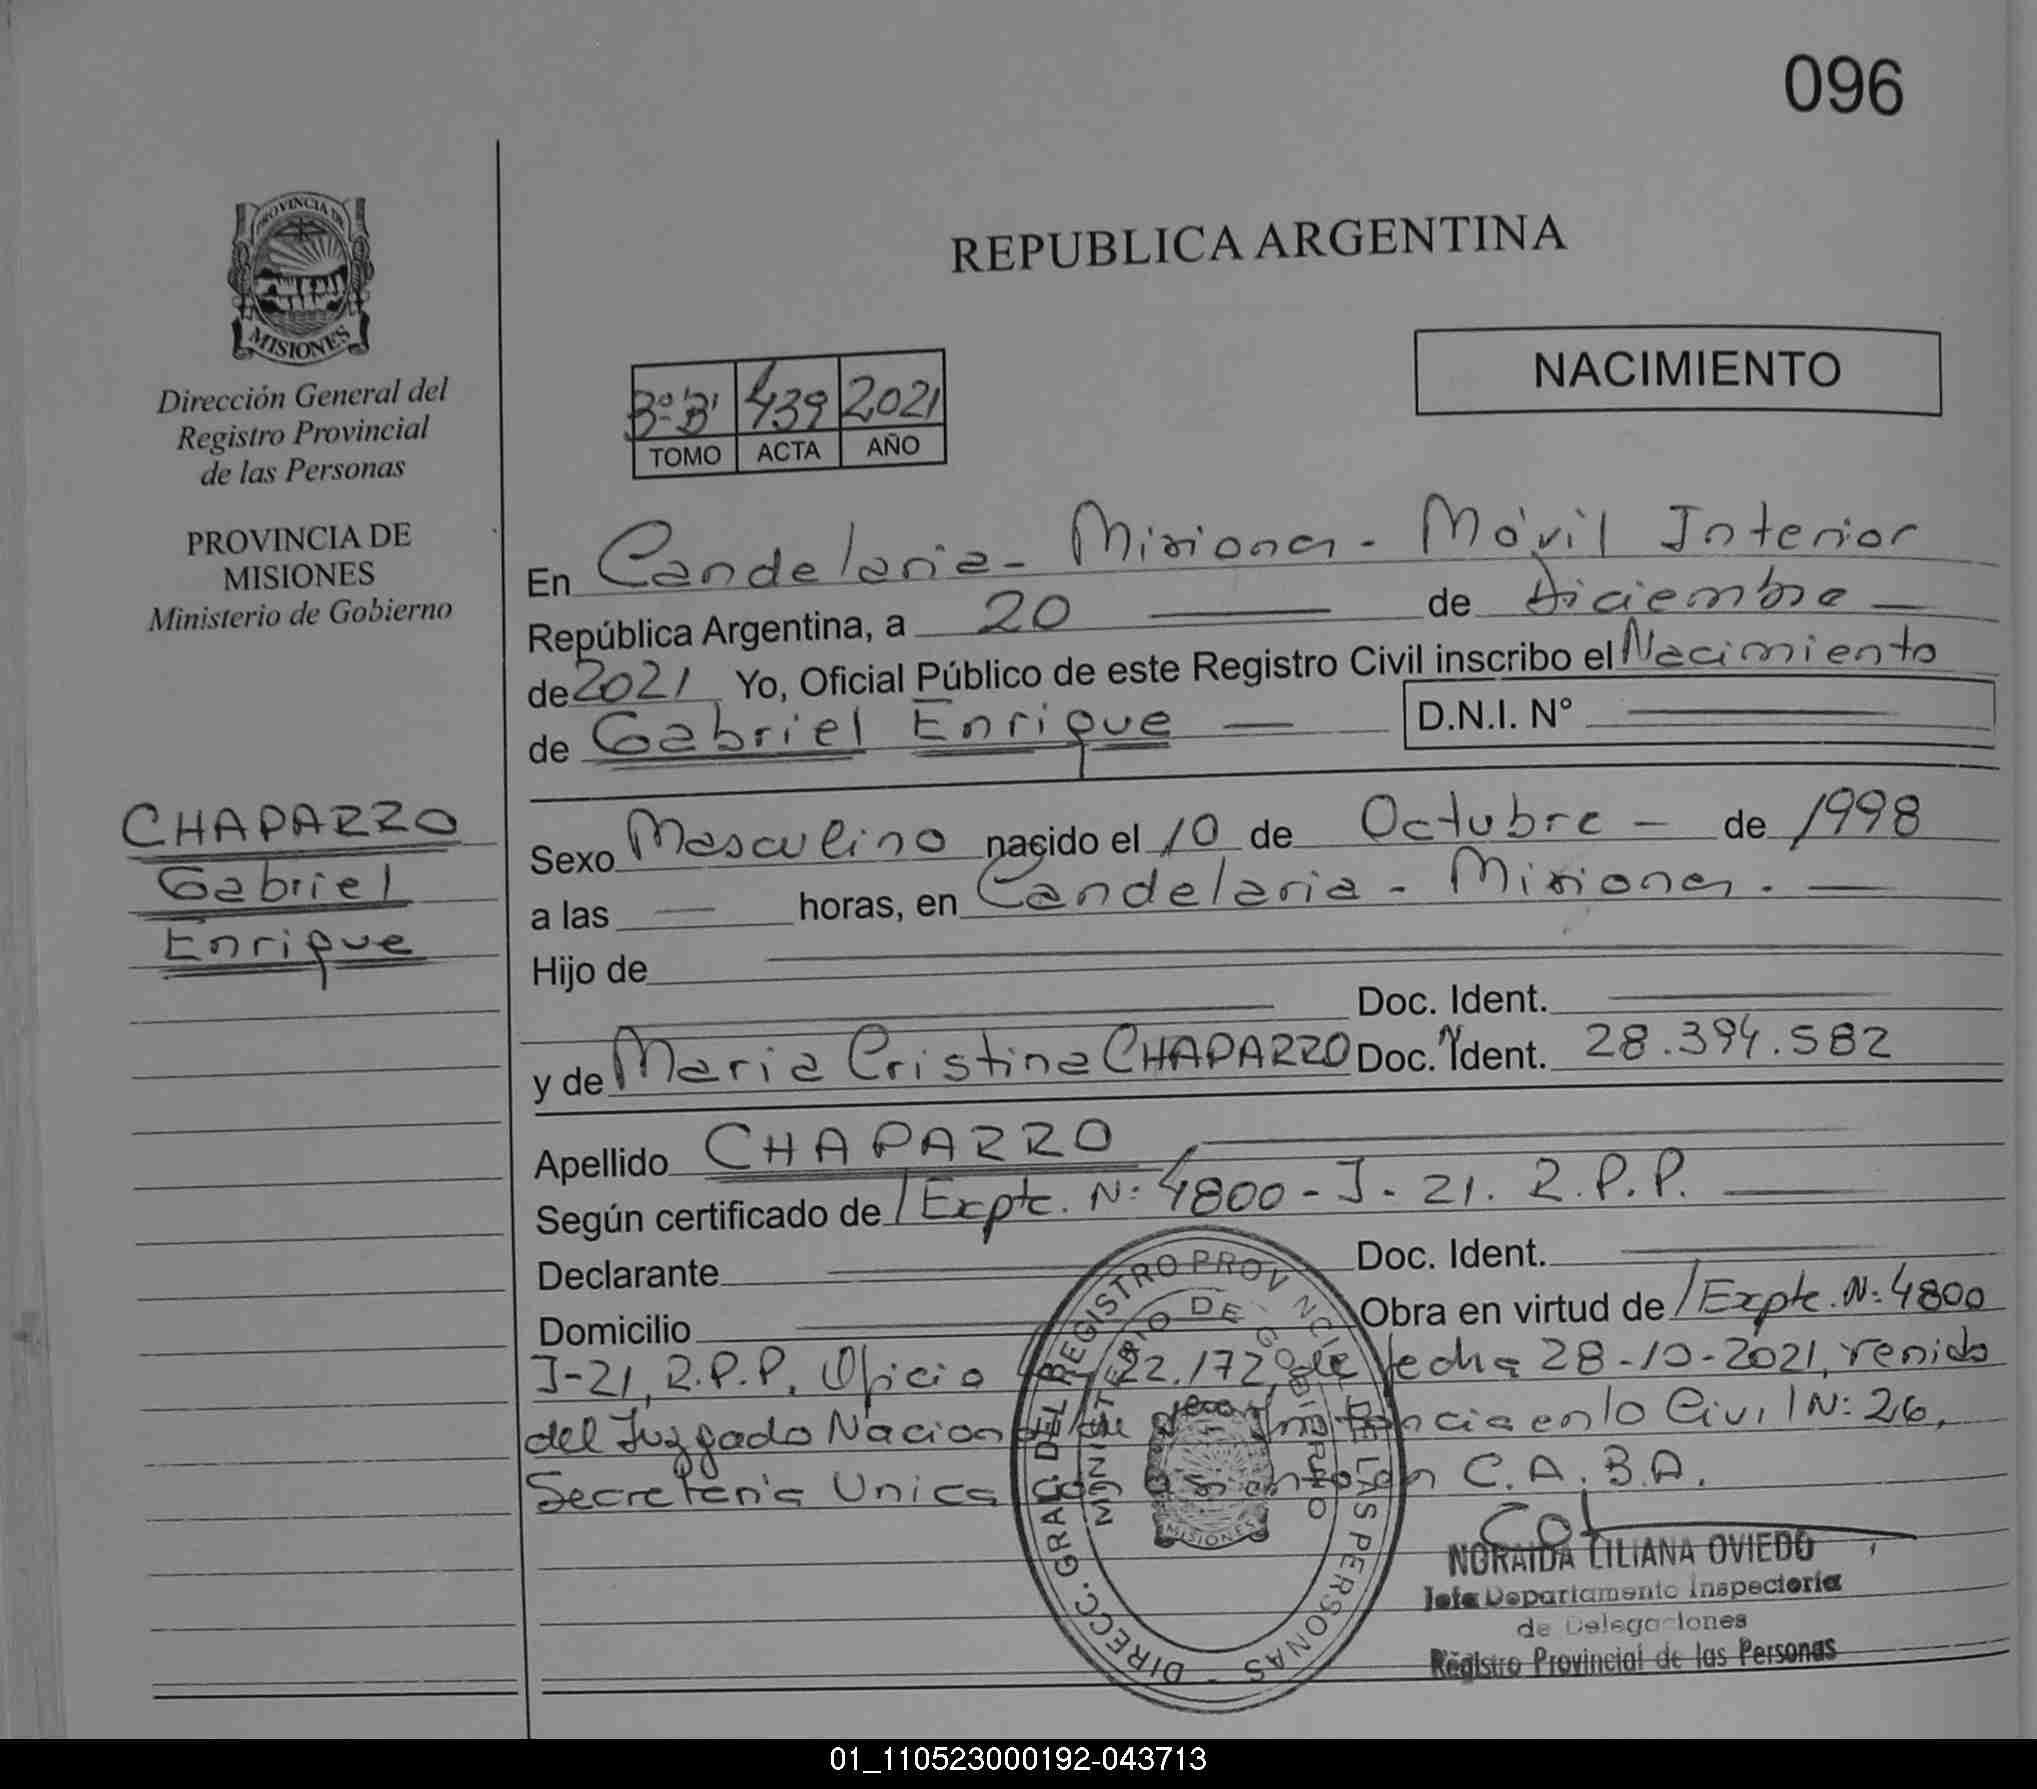 096
PROVINCIA DE
MISIONES
Dirección General del
Registro Provincial
de las Personas
PROVINCIA DE
MISIONES
Ministerio de Gobierno
CHAPARRO
Gabriel
Enrique
REPUBLICA ARGENTINA
NACIMIENTO
3º "B" 439 2021
TOMO ACTA AÑO
En Candelaria - Misiones - Móvil Interior
República Argentina, a 20 de Diciembre
de 2021 Yo, Oficial Público de este Registro Civil inscribo el Nacimiento
de Gabriel Enrique D.N.I. N°
Sexo Masculino nacido el 10 de Octubre - de 1998
a las horas, en Candelaria - Misiones.
Hijo de
Doc. Ident.
y de Maria Cristina CHAPARRO Doc. Ident. 28.394.582
Apellido CHAPARRO
Según certificado de / Expte. N: 4800 - J - 21. R.P.P.
Declarante Doc. Ident.
Domicilio Obra en virtud de / Expte. N: 4800
J-21, R.P.P. Oficio 22.172, de fecha 28-10-2021, venido
del Juzgado Nacional de Instancia en lo Civil N: 26,
Secretería Unica con asiento en C.A.B.A.
DIRECC. GRAL. DEL REGISTRO PROVINCIAL DE LAS PERSONAS -
MINISTERIO DE GOBIERNO
MISIONES
NORAIDA LILIANA OVIEDO
Jefa Departamento Inspectoria
de Delegaciones
Registro Provincial de las Personas
01_110523000192-043713